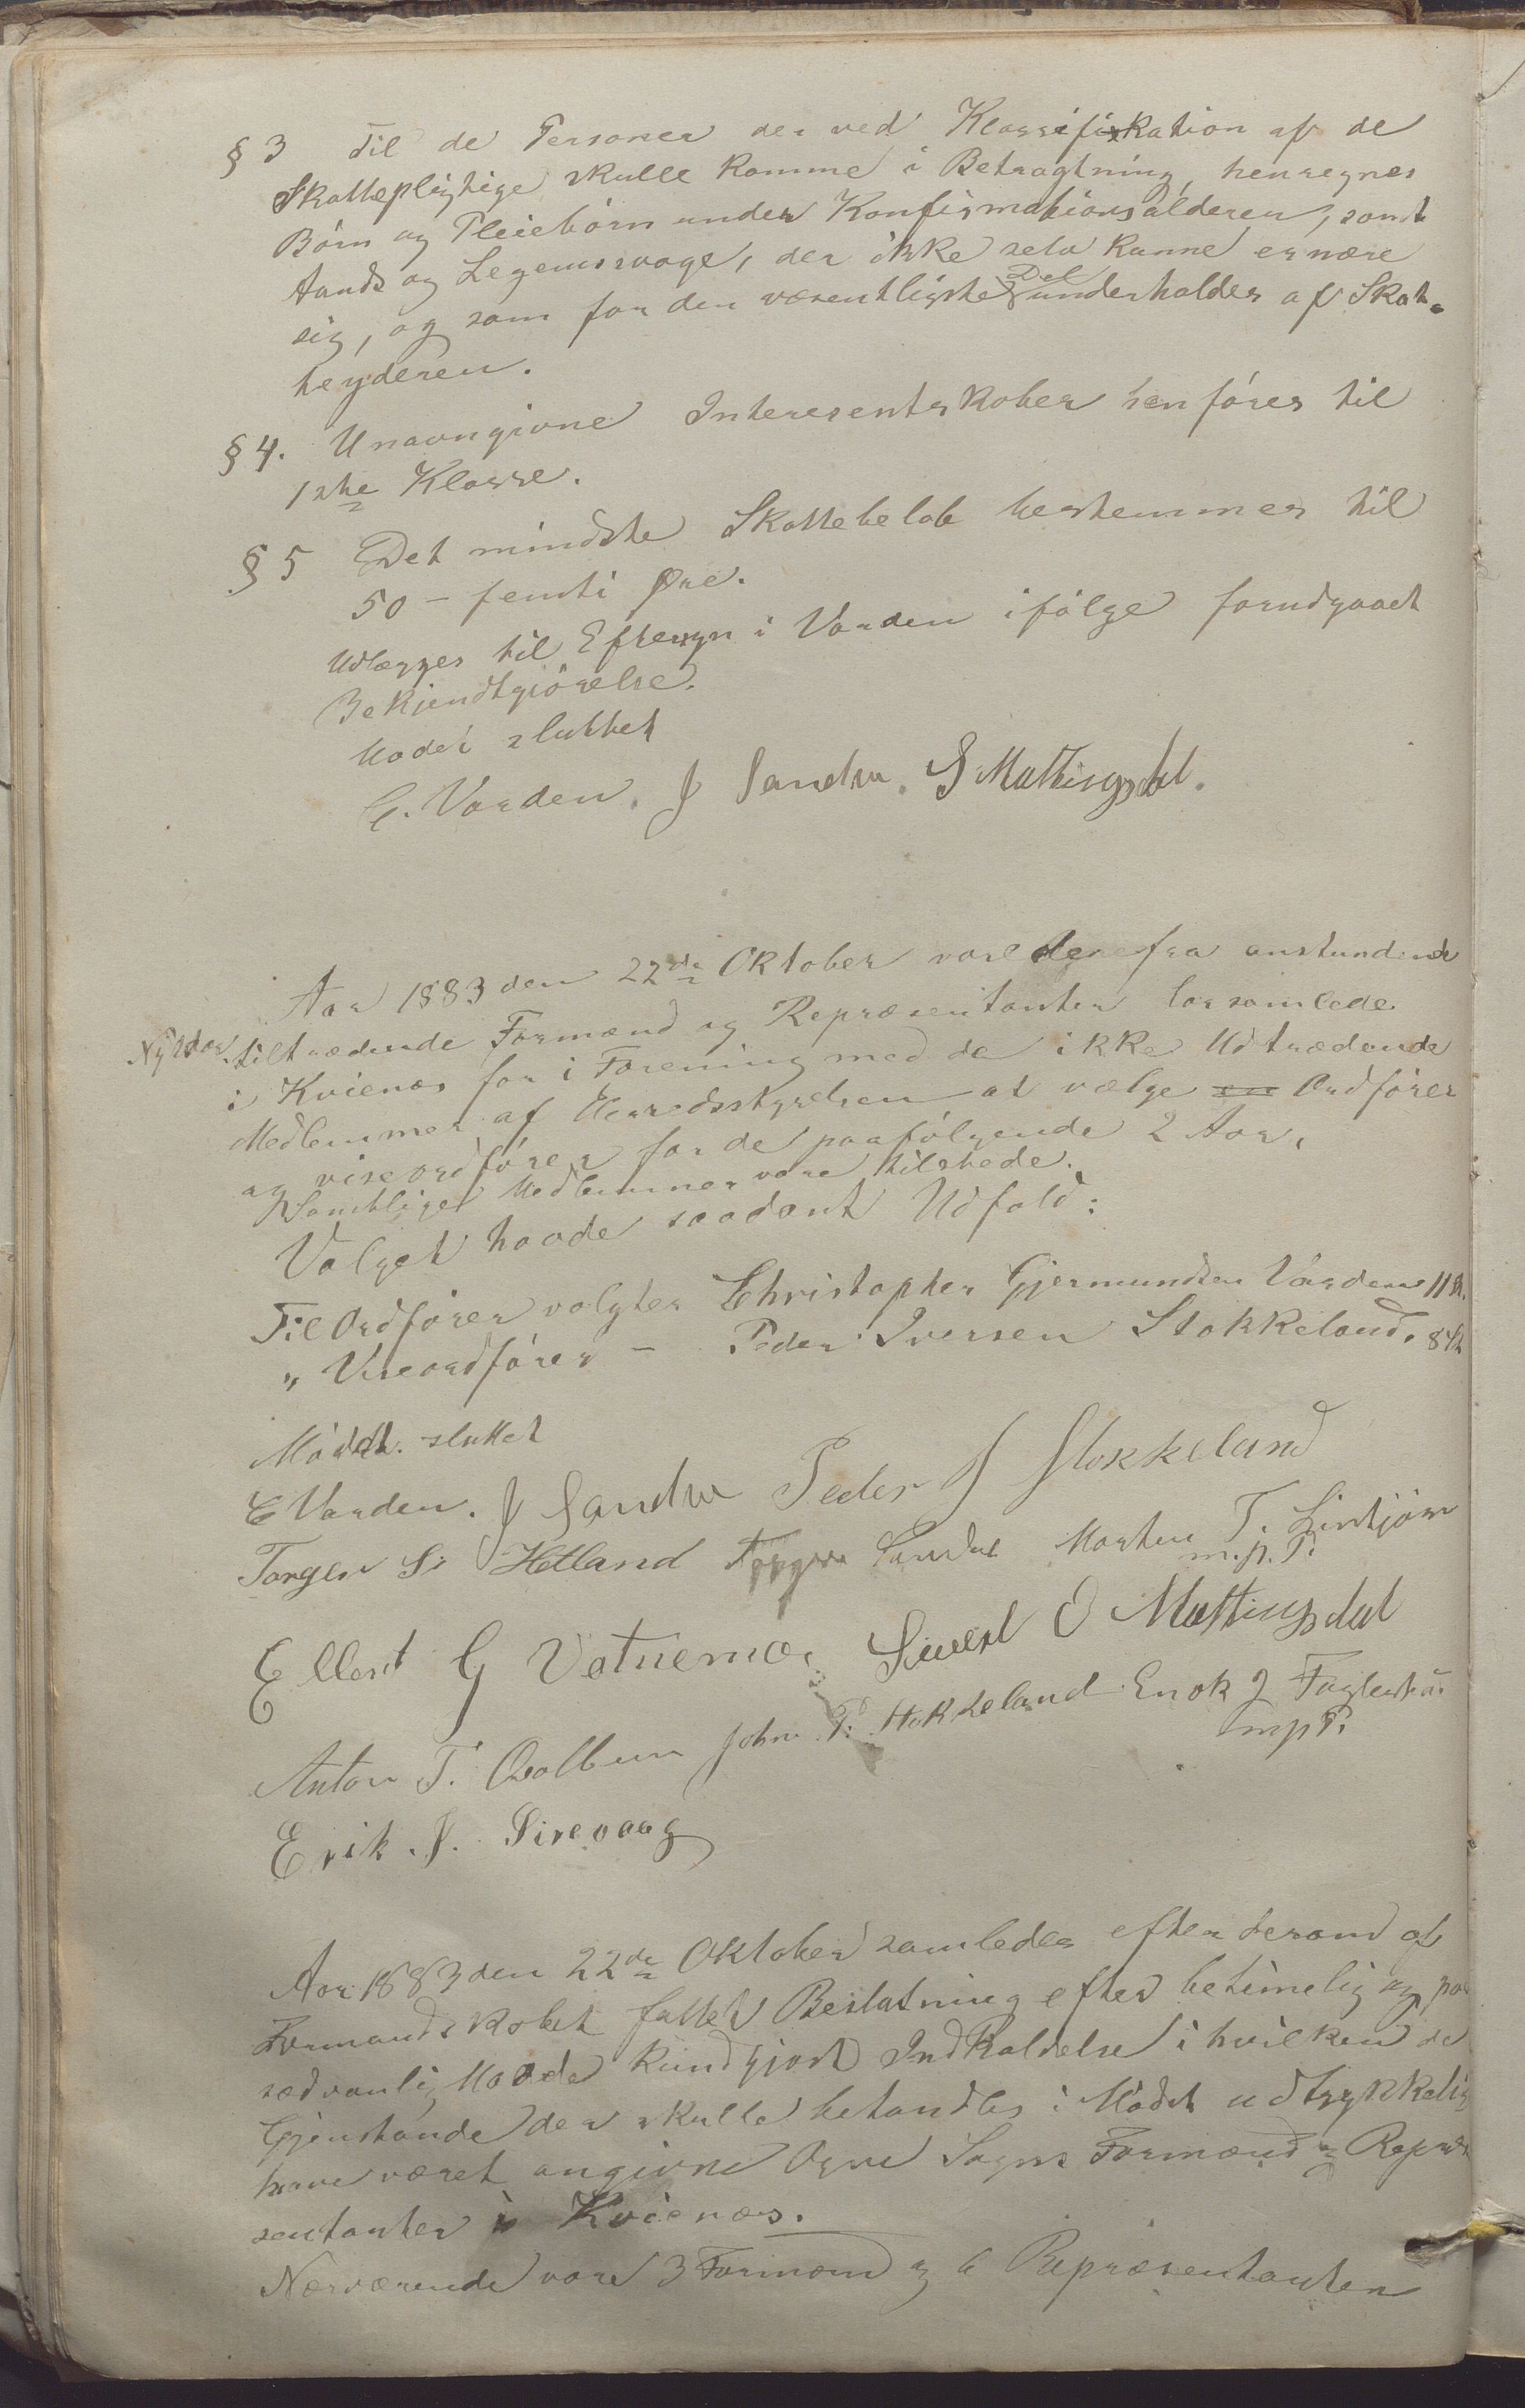 § 3 Til de Personer der ved Klassifikation af de
Skattepligtige skulle komme i Betragtning, henregnes
Börn og Pleiebörn under Konfirmationsalderen, samt
Aands og Legemssvage, der ikke selv kunne ernære
sig, og som for den væsentligste Del underholdes af Skat-
teyderen.
§ 4. Unavngivne Interesentskaber henföres til
1ste Klasse.
§ 5 Det mindste Skattebelöb bestemmes til
50 - femti Øre.
Udlægges til Eftersyn i Varden ifölge forudgaaet
Bekjendtgjörelse.
Mödet sluttet
C. Varden. J Sandve. S Mattingsdal.
Aar 1883 den 22de Oktober vare de fra anstundende
Nytaar tiltrædende Formænd og Repræsentanter forsamlede
i Kvienes for i Forening med de ikke Udtrædende
Medlemmer af Herredsstyrelsen at vælge en Ordförer
og viseordförer for de paafölgende 2 Aar.
Samtlige Medlemmer vare tilstede.
Valget havde saadant Udfald:
Til Ordförer valgtes Christopher Gjermundsen Varden 11 St.
" Viseordförer - Peder Iversen Stokkeland. 8 St
Mödet sluttet
C Varden. J Sandve Peder J Stokkeland
Torger S. Hetland Morten T. Lintjörn
m.p.P.
Ellert G Vatnemo. Sivert O Mattingsdal
Anton T. Qvalbein John P. Stokkeland Enok J Fuglestad
mpP.
Erik J. Sirevaag
Aar 1883 den 22de Oktober samledes efter derom af
Formandskabet fattet Beslutning efter betimelig og paa
sædvanlig Maade kundgjort Indkaldelse i hvilken de
Gjenstande der skulle behandles i Mödet udtrykkelig
have været angivne Ogne Sogns Formænd og Repræ
sentanter i Kvienes.
Nærværende vare 3 Formænd og 6 Repræsentanter